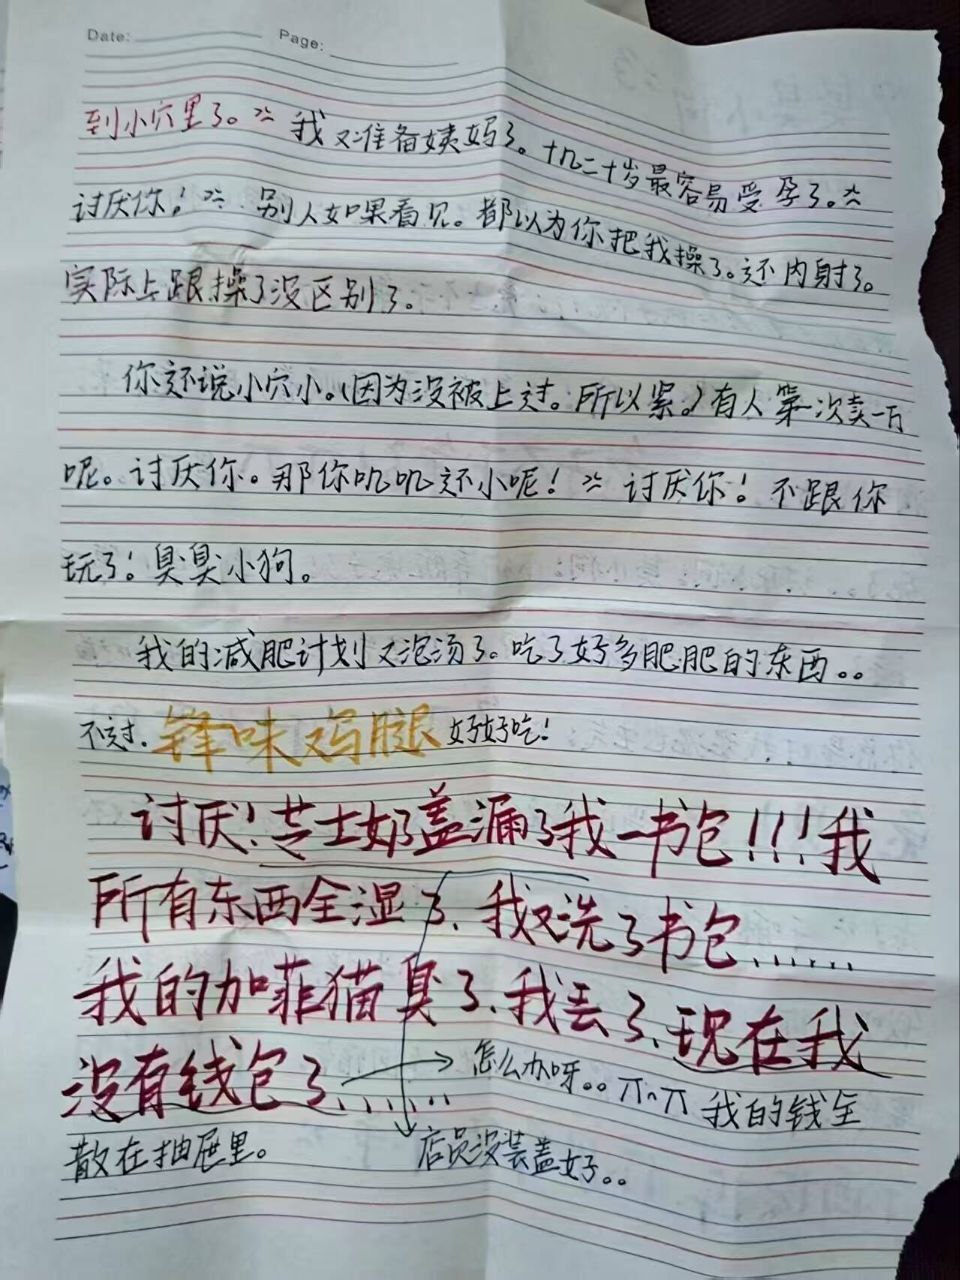 Date: Page:
到小穴里了。我又准备姨妈了。十几二十岁最容易受孕了。
讨厌你！别人如果看见。都以为你把我操了。还内射了。
实际上跟操了没区别了。
你还说小穴小。(因为没被上过。所以紧。)有人第一次卖一万
呢。讨厌你。那你叽叽还小呢！讨厌你！不跟你
玩了！臭臭小狗。
我的减肥计划又泡汤了。吃了好多肥肥的东西。。
不过.锋味鸡腿好好吃！
讨厌！芝士奶盖漏了我一书包！！！我
所有东西全湿了、我又洗了书包......
我的加菲猫臭了、我丢了、现在我
没有钱包了......
怎么办呀。。ㅠ^ㅠ 我的钱全
散在抽屉里。
店员没装盖好。。